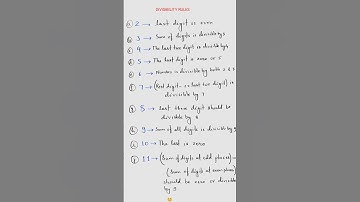 DIVISIBILITY RULES
a) 2 → last digit is even
b) 3 → Sum of digits is divisible by 3
c) 4 → The last two digit is divisible by 4
d) 5 → The last digit 0 or 5
e) 6 → Number is divisible by both 2 & 3
f) 7 → (Rest digit - 2x last digit) is
divisible by 7
g) 8 → last three digit should be
divisible by 8
h) 9 → Sum of all digits is divisible by 9
10 → The last is zero
11 → (Sum of digits at odd places) -
(Sum of digits at even places)
should be zero or divisible
by